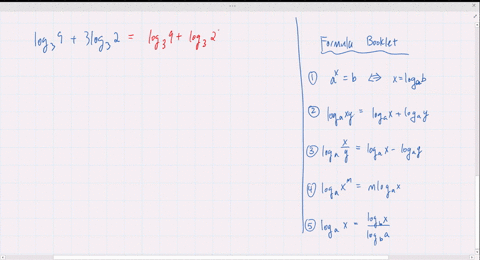 log₃ 9 + 3log₃ 2 = log₃ 9 + log₃ 2
Formula Booklet
① aˣ = b ⇔ x = logₐb
② logₐxy = logₐx + logₐy
③ logₐ x/y = logₐx - logₐy
④ logₐ xᵐ = m logₐx
⑤ logₐ x = log_b x / log_b a